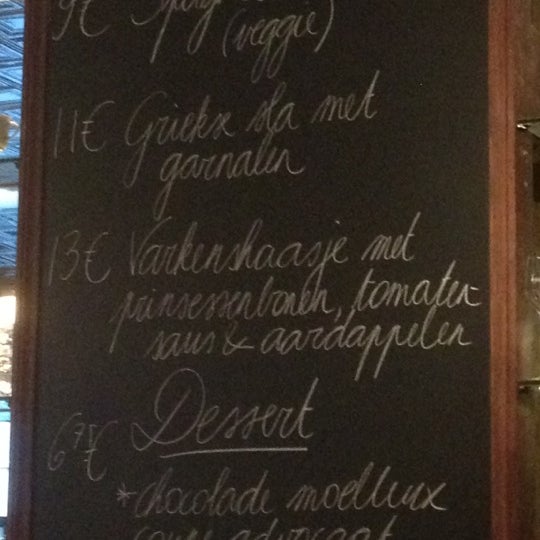 9€
(veggie)
11€ Griekse sla met
garnalen
13€ Varkenshaasje met
prinsessenbonen, tomaten-
saus & aardappelen
Dessert
6,75€
* chocolade moelleux
coupe advocaat